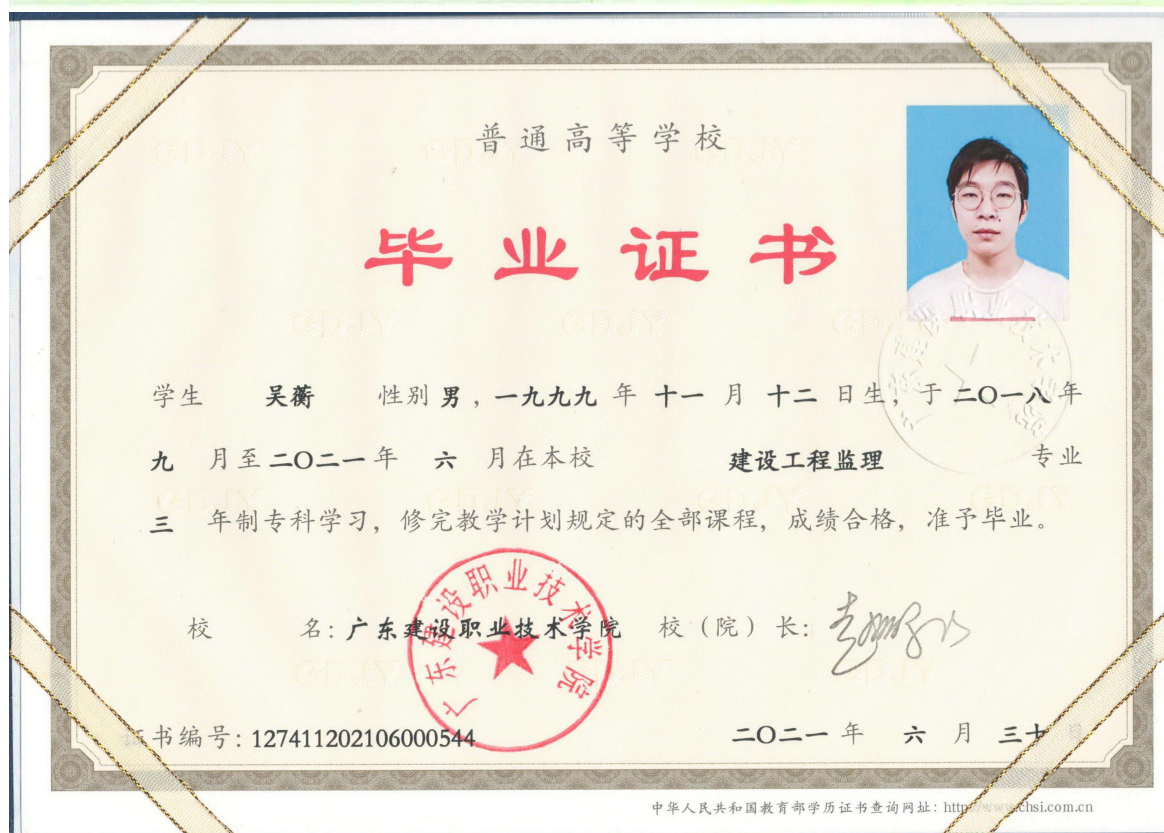 普通高等学校
毕业证书
学生 吴蘅 性别 男，一九九九 年 十一 月 十二 日生，于 二〇一八 年
九 月至 二〇二一 年 六 月在本校 建设工程监理 专业
三 年制专科学习，修完教学计划规定的全部课程，成绩合格，准予毕业。
校 名：广东建设职业技术学院 校（院）长：
广东建设职业技术学院
证书编号：127411202106000544 二〇二一 年 六 月 三十 日
中华人民共和国教育部学历证书查询网址：http://www.chsi.com.cn